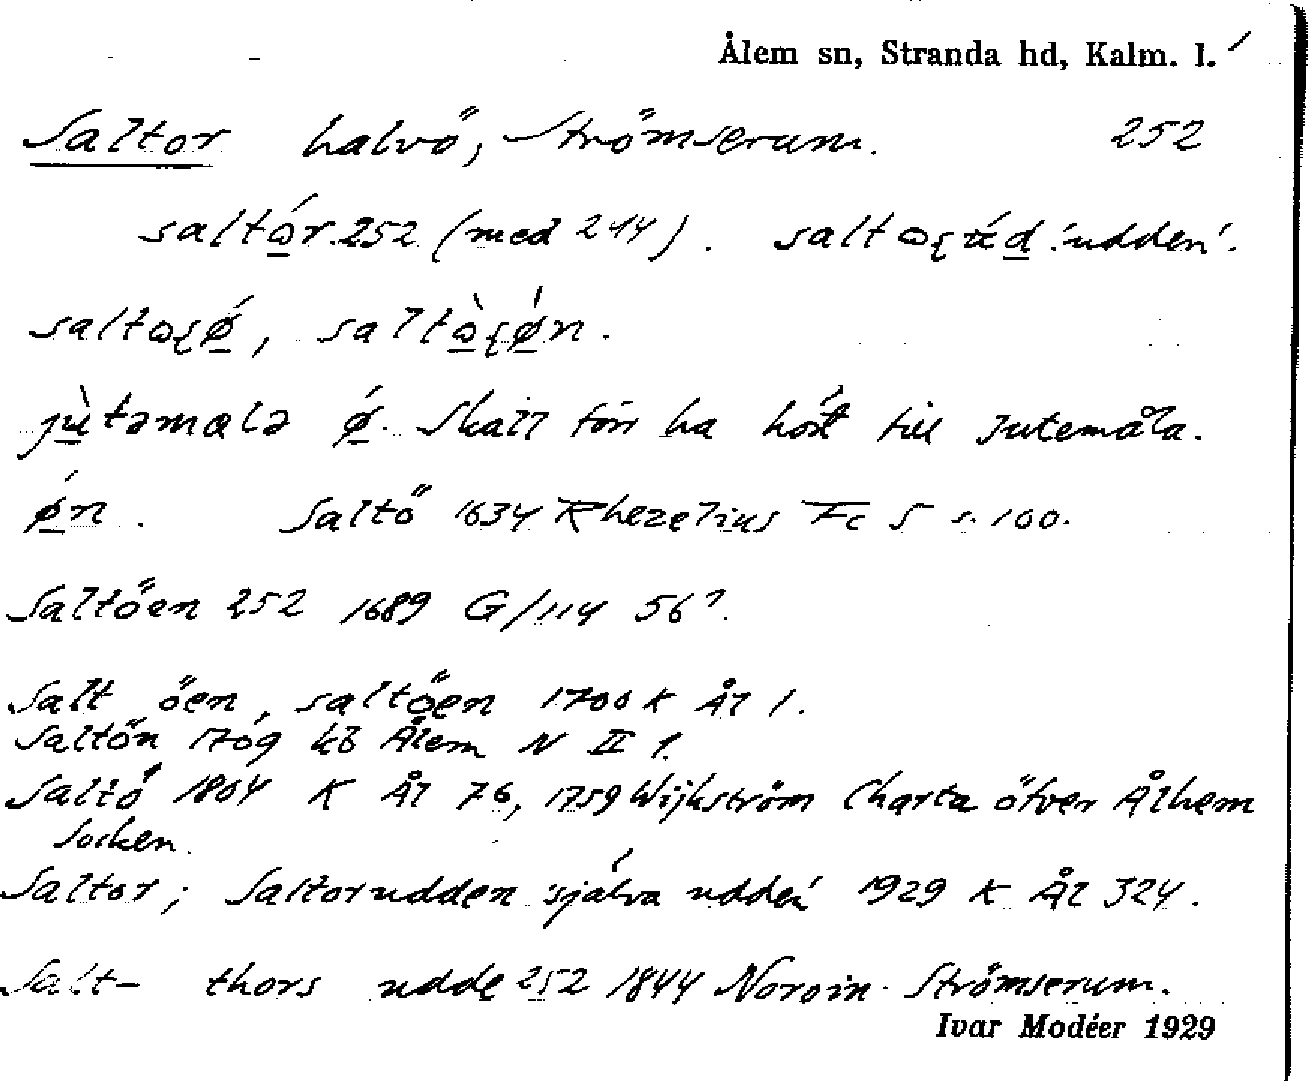 Ålem sn, Stranda hd, Kalm. l.
Saltor halvö, Strömserum. 252
saltǿr 252 (med 244). 'udden'.
Skall förr ha hört till Jutemåla.
Saltö 1634 Rhezelius Fc 5 s. 100.
Saltöen 252 1689 G/114 56?.
Salt öen, saltöen 1700 K Ål 1.
Saltön 1709 kb Ålem N II 1.
Saltö 1804 K Ål 76, 1759 Wijkström Charta öfver Ålhem
Socken.
Saltor; Saltorudden 'själva udden' 1929 K Ål 324.
Salt- thors udde 252 1844 Strömserum.
Ivar Modéer 1929